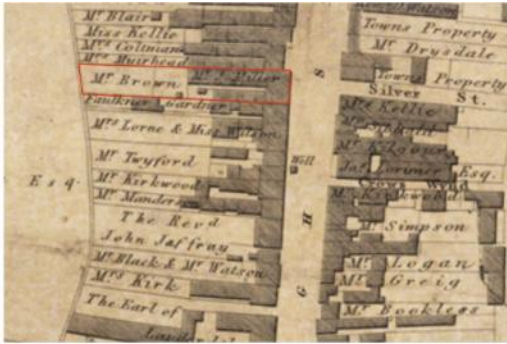 Mr. Blair
Miss Kellie
Mrs. Colinan
Mrs. Muirhead
Mr. Brown
Faulkner Gardner
Mrs. Lorne & Miss Watson
Mr. Twyford
Mr. Kirkwood
Mr. Manders
The Revd
John Jaffray
Mr. Black & Mr. Watson
Mrs. Kirk
The Earl of
Esq.
Well
S
H
G
Towns Property
Mr. Drysdale
Towns Property
Silver St.
Mrs. Kellie
Jas. Lorimer Esq.
Cross Wynd
Mr. Kirkwood
Mr. Simpson
Mr. Logan
Mr. Greig
Mr. Bookless